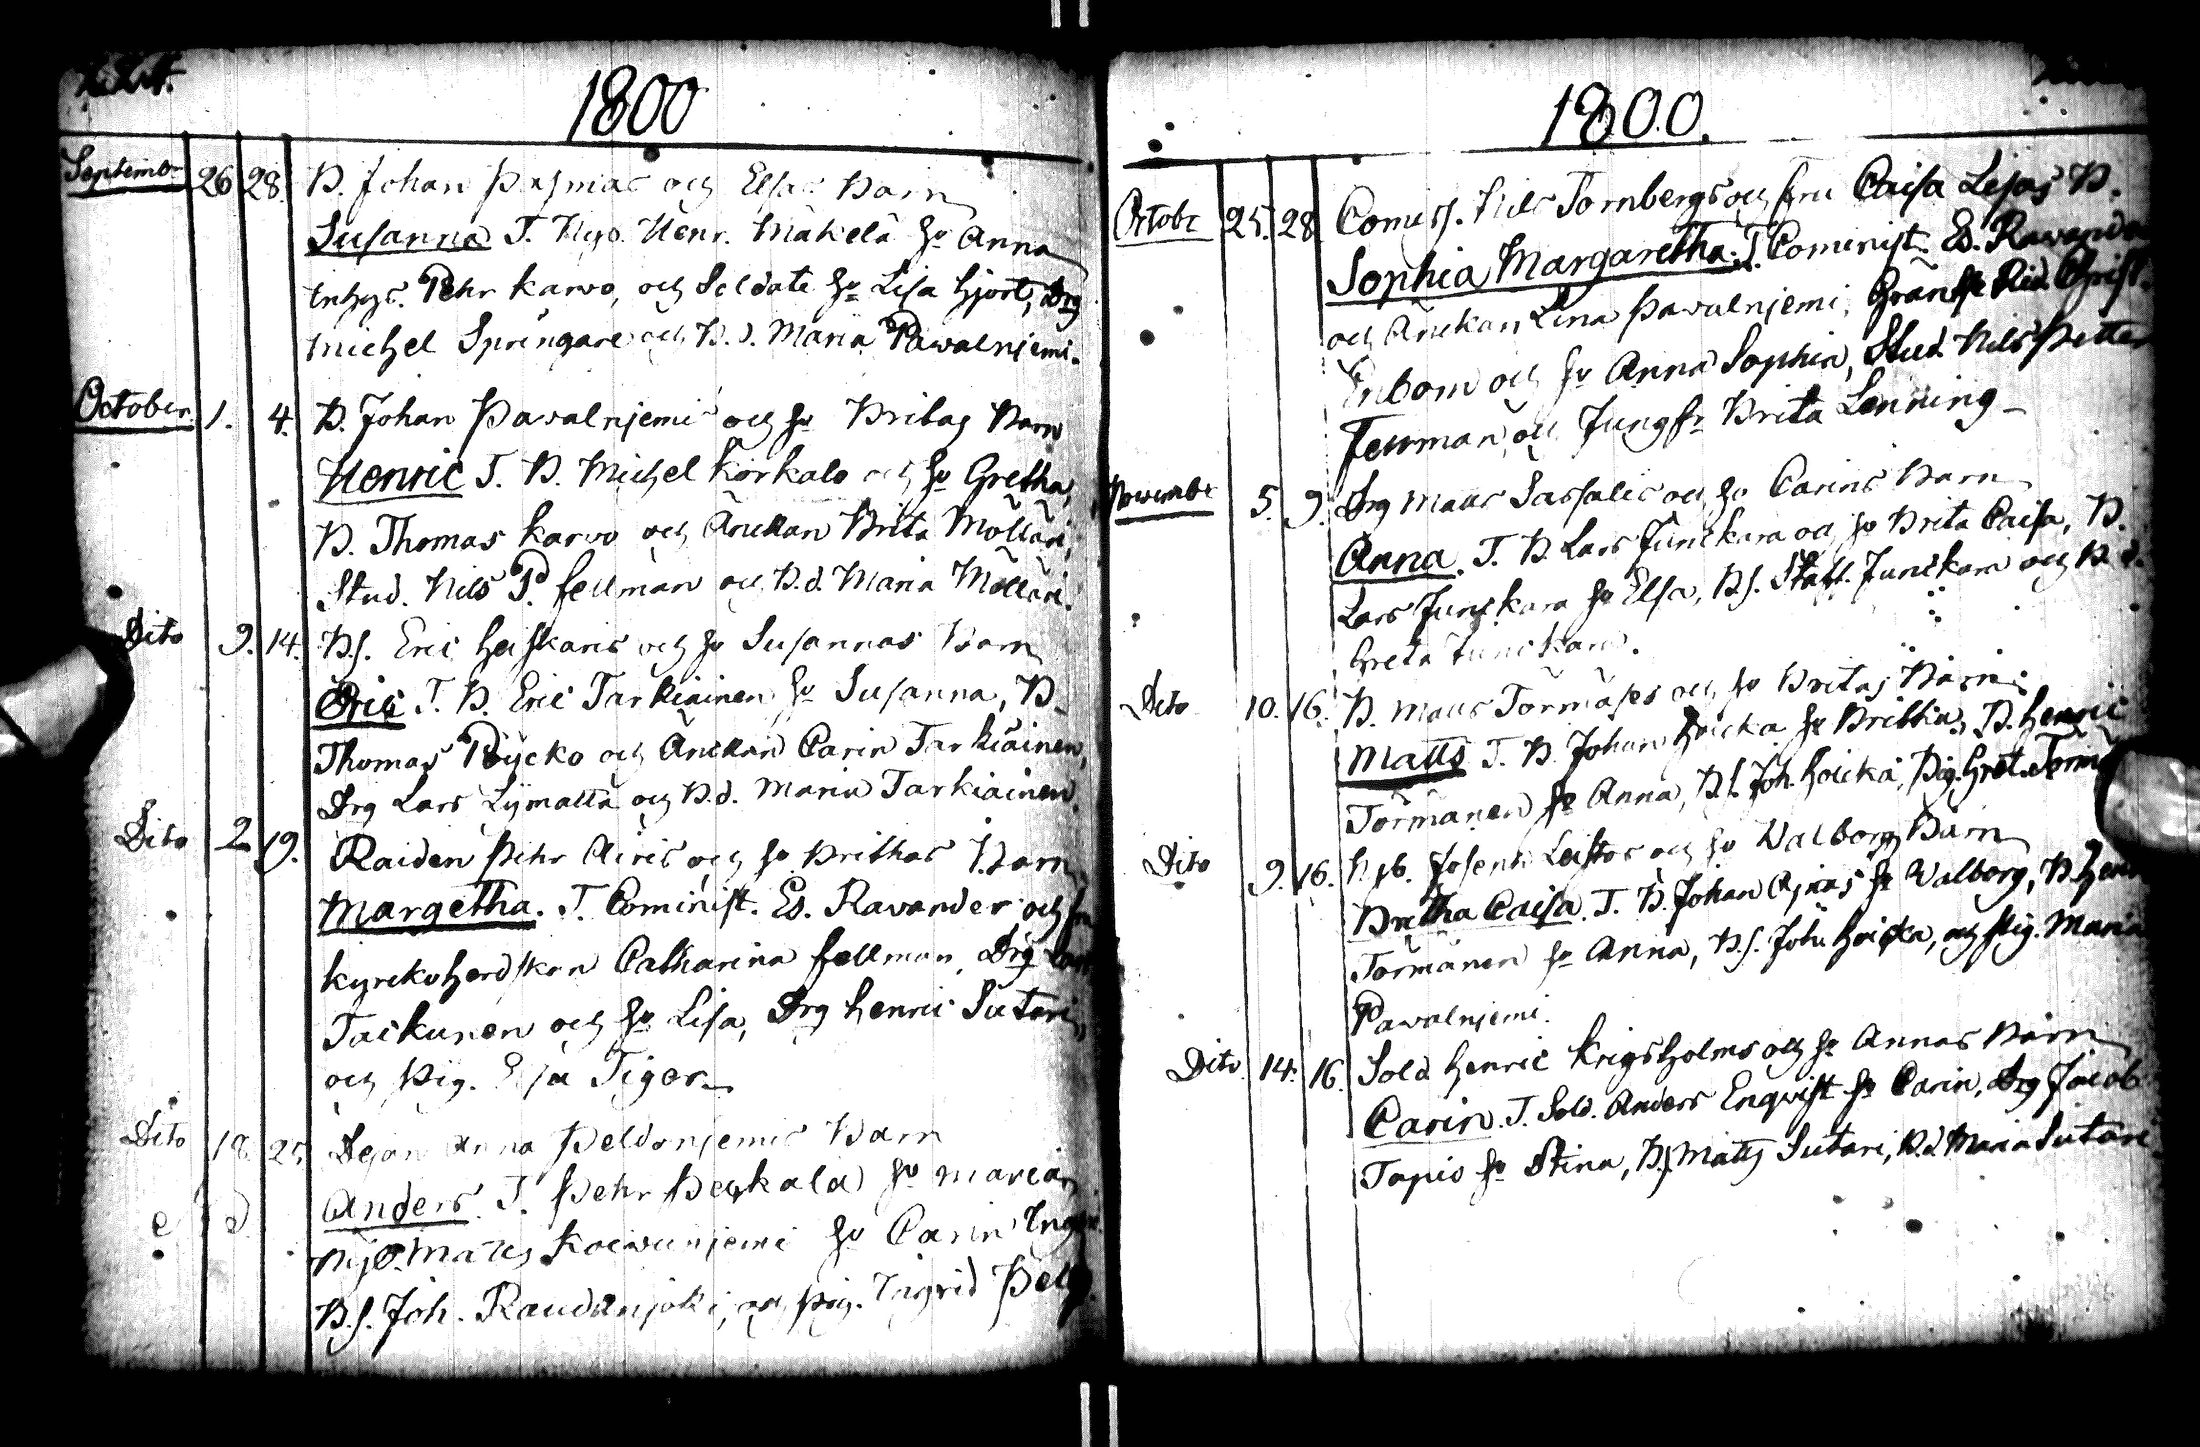 1800
Septembr 26 28. B. Johan Pajmas och Elsas Barn
Susanna T. Nyb. Henr. Mäkelä hu Anna
Inhys. Pehr Karvo, och Soldate hu Lisa Hjort, Drg
Michel Springare och B.d. Maria Pawalnjemi.
October. 1. 4. B. Johan Pawalnjemi och hu Britas Barn
Henric T. B. Michel Korkalo och hu Gretha,
B. Thomas Karvo och Änckan Brita Mölläri,
Stud. Nils P. Fellman och B.d. Maria Mölläri.
Dito 9. 14. B.s. Eric Heiskaris och hu Susannas Barn
Eric T. B. Eric Tarkiainen hu Susanna, B.
Thomas Pöycko och Änckan Carin Tarkiäinen,
Drg Lars Lymatta och B.d. Maria Tarkiainen.
Dito 2 19. Raiden Pehr Airis och hu Brithas Barn
Margetha. T. Cominist. Es. Ravander och
Kyrckoherdskan Catharina Fellman, Drg
Taskunen och hu Lisa, Drg Henric Sutari,
och Pig. Tiger
Dito 18 25 Anna Peldonjemis Barn
Anders. T. Pehr hu Maria,
Nyb. Matts Koivunjemi hu Carin
B.s. Joh. Raudanjoki, och Pig. Ingrid
1800.
Octobr 25. 28 Comiss. Nils Tornbergs och fru Caisa Lisas B.
Sophia Margaretha. T. Cominist. Es. Ravander
och Änckan Lina Pawalnjemi, Gränse Rid. Christ.
Enbom och hu Anna Sophia, Stud. Nils Petter
Fellman, och Jungfr Brita Lenning
Novembr 5. 9. Drg Matts Sassalis och hu Carins Barn
Anna. T. B Lars Junckara och hu Brita Caisa, B.
Lars Junckara hu Elsa, B.s. Staff. Junckara och B.d.
Greta Junckara.
Dito 10. 16. B. Matts Törmäses och hu Britas Barn
Matts T. B. Johan Hoicka hu Britha, B. Henric
Törmänen hu Anna, B.s. Joh. Hoicka, Pig. Gret. Törmä
Dito 9. 16. Nyb. Joseph Leistos och hu Walborg Barn
Britha Caisa. T. B. Johan Ajnas hu Walborg, B. Henr
Törmänen hu Anna, B.s. Joh. Hoicka, och Pig. Maria
Pawalnjemi.
Dito 14. 16. Sold Henric Krigsholms och hu Annas Barn
Carin. T. Sold. Anders Enqvist hu Carin, Drg Jacob
Tapio hu Stina, B.s. Matts Sutari, B.d. Maria Sutari